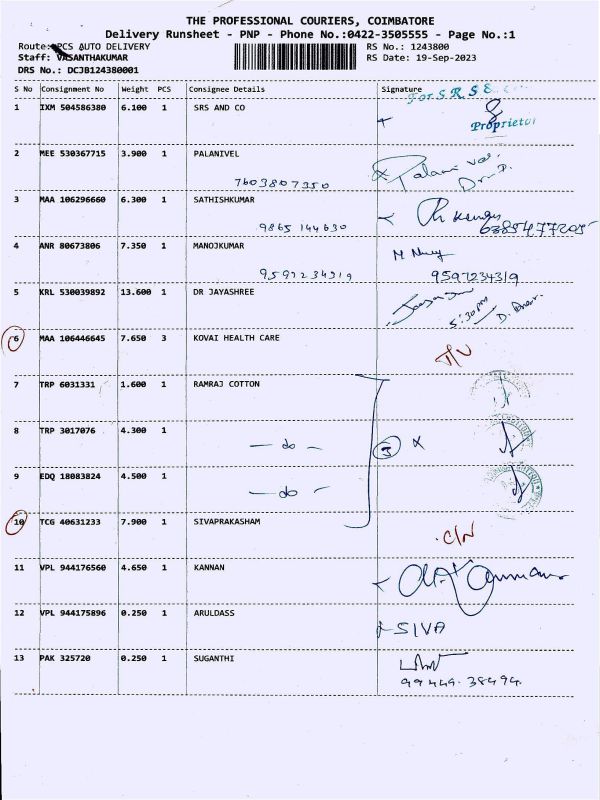 THE PROFESSIONAL COURIERS, COIMBATORE
Delivery Runsheet - PNP - Phone No.:0422-3505555 - Page No.:1
Route: PCS AUTO DELIVERY RS No.: 1243800
Staff: VASANTHAKUMAR RS Date: 19-Sep-2023
DRS No.: DCJB124380001
S No Consignment No Weight PCS Consignee Details Signature
For S R S &
1 IXM 504586380 6.100 1 SRS AND CO
Proprietor
2 MEE 530367715 3.900 1 PALANIVEL
7603807350
3 MAA 106296660 6.300 1 SATHISHKUMAR
9865144630 6385477205
4 ANR 80673806 7.350 1 MANOJKUMAR
9597234319 9597234319
5 KRL 530039892 13.600 1 DR JAYASHREE
5:30pm
6 MAA 106446645 7.650 3 KOVAI HEALTH CARE
7 TRP 6031331 1.600 1 RAMRAJ COTTON
8 TRP 3017076 4.300 1
- do - 3
9 EDQ 18083824 4.500 1
- do -
10 TCG 40631233 7.900 1 SIVAPRAKASHAM
C/N
11 VPL 944176560 4.650 1 KANNAN
12 VPL 944175896 0.250 1 ARULDASS
SIVA
13 PAK 325720 0.250 1 SUGANTHI
99449.38494.